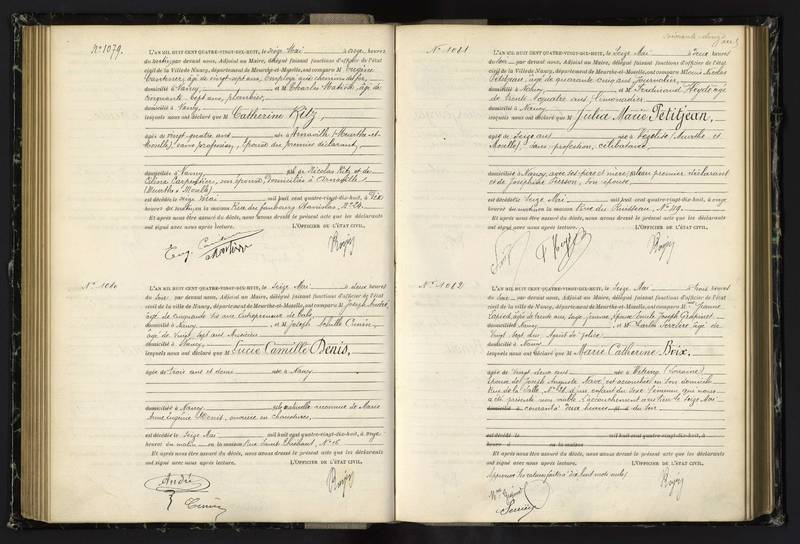 N° 1079.
L'AN MIL HUIT CENT QUATRE-VINGT-DIX-HUIT, le Seize Mai à onze heures
du matin, par devant nous, Adjoint au Maire, délégué faisant fonctions d'officier de l'état
civil de la Ville de Nancy, département de Meurthe-et-Moselle, ont comparu M Eugène
âgé de vingt-sept ans, Employé aux chemins de fer,
domicilié à Nancy, et M Charles âgé de
cinquante-sept ans, plombier,
domicilié à Nancy
lesquels nous ont déclaré que M Catherine Kitz,
agée de vingt-quatre ans née à Arnaville (Meurthe-et-
Moselle), sans profession, Épouse du premier déclarant,
domiciliée à Nancy fille de Nicolas Kitz et de
Céline Carpentier, son épouse, domiciliés à Arnaville
(Meurthe & Moselle)
est décédée le Seize Mai mil huit cent quatre-vingt-dix-huit, à Dix
heures du matin en la maison Rue du faubourg Stanislas, N° 24.
Et après nous être assuré du décès, nous avons dressé le présent acte que les déclarants
ont signé avec nous après lecture. L'OFFICIER DE L'ÉTAT CIVIL,
N° 1080
L'AN MIL HUIT CENT QUATRE-VINGT-DIX-HUIT, le Seize Mai à deux heures
du Soir, par devant nous, Adjoint au Maire, délégué faisant fonctions d'officier de l'état
civil de la ville de Nancy, département de Meurthe-et-Moselle, ont comparu M Joseph André,
âgé de cinquante six ans Entrepreneur de bals,
domicilié à Nancy et M Joseph Achille
âgé de vingt sept ans Musicien
domicilié à Nancy,
lesquels nous ont déclaré que M Lucie Camille Denis,
agée de trois ans et demi née à Nancy
domiciliée à Nancy fille naturelle reconnue de Marie
Anne Eugénie Denis, ouvrière en chaussures,
est décédée le Seize Mai mil huit cent quatre-vingt-dix-huit, à onze
heures du matin en la maison rue Saint Thiébaut, N° 16
Et après nous être assuré du décès, nous avons dressé le présent acte que les déclarants
ont signé avec nous après lecture. L'OFFICIER DE L'ÉTAT CIVIL,
André
N° 1081
L'AN MIL HUIT CENT QUATRE-VINGT-DIX-HUIT, le Seize Mai à deux heures
du soir, par devant nous, Adjoint au Maire, délégué faisant fonctions d'officier de l'état
civil de la Ville de Nancy, département de Meurthe-et-Moselle, ont comparu M Louis Nicolas
Petitjean, âgé de quarante cinq ans Journalier,
domicilié à Nancy, et M Ferdinand Heydé âgé
de trente quatre ans Limonadier
domicilié à Nancy
lesquels nous ont déclaré que M Julie Marie Petitjean,
agée de Seize ans née à Vézelise (Meurthe et
Moselle) sans profession, célibataire
domiciliée à Nancy, avec ses père et mère, fille du premier déclarant
et de Joséphine Pierson, son épouse
est décédée le Seize Mai mil huit cent quatre-vingt-dix-huit, à onze
heures du matin en la maison Rue du Ruisseau, N° 19.
Et après nous être assuré du décès, nous avons dressé le présent acte que les déclarants
ont signé avec nous après lecture. L'OFFICIER DE L'ÉTAT CIVIL,
N° 1082
L'AN MIL HUIT CENT QUATRE-VINGT-DIX-HUIT, le Seize Mai à trois heures
du soir par devant nous, Adjoint au Maire, délégué faisant fonctions d'officier de l'état
civil de la ville de Nancy, département de Meurthe-et-Moselle, ont comparu Mme Jeanne
âgée de trente ans, sage femme, épouse Émile
domiciliée à Nancy et M Charles âgé de
vingt sept ans Agent de Police
domicilié à Nancy
lesquels nous ont déclaré que M Marie Catherine Brix,
agée de vingt deux ans née à (Lorraine)
épouse de Joseph Auguste est accouchée en son domicile
Rue de la Salle, N° 21, d'un enfant du sexe féminin, qui nous
a été présenté non viable. L'accouchement a eu lieu le seize Mai
courant à deux heures du soir.
est décédé le mil huit cent quatre-vingt-dix-huit, à
heures du en la maison
Et après nous être assuré du décès, nous avons dressé le présent acte que les déclarants
ont signé avec nous après lecture. L'OFFICIER DE L'ÉTAT CIVIL,